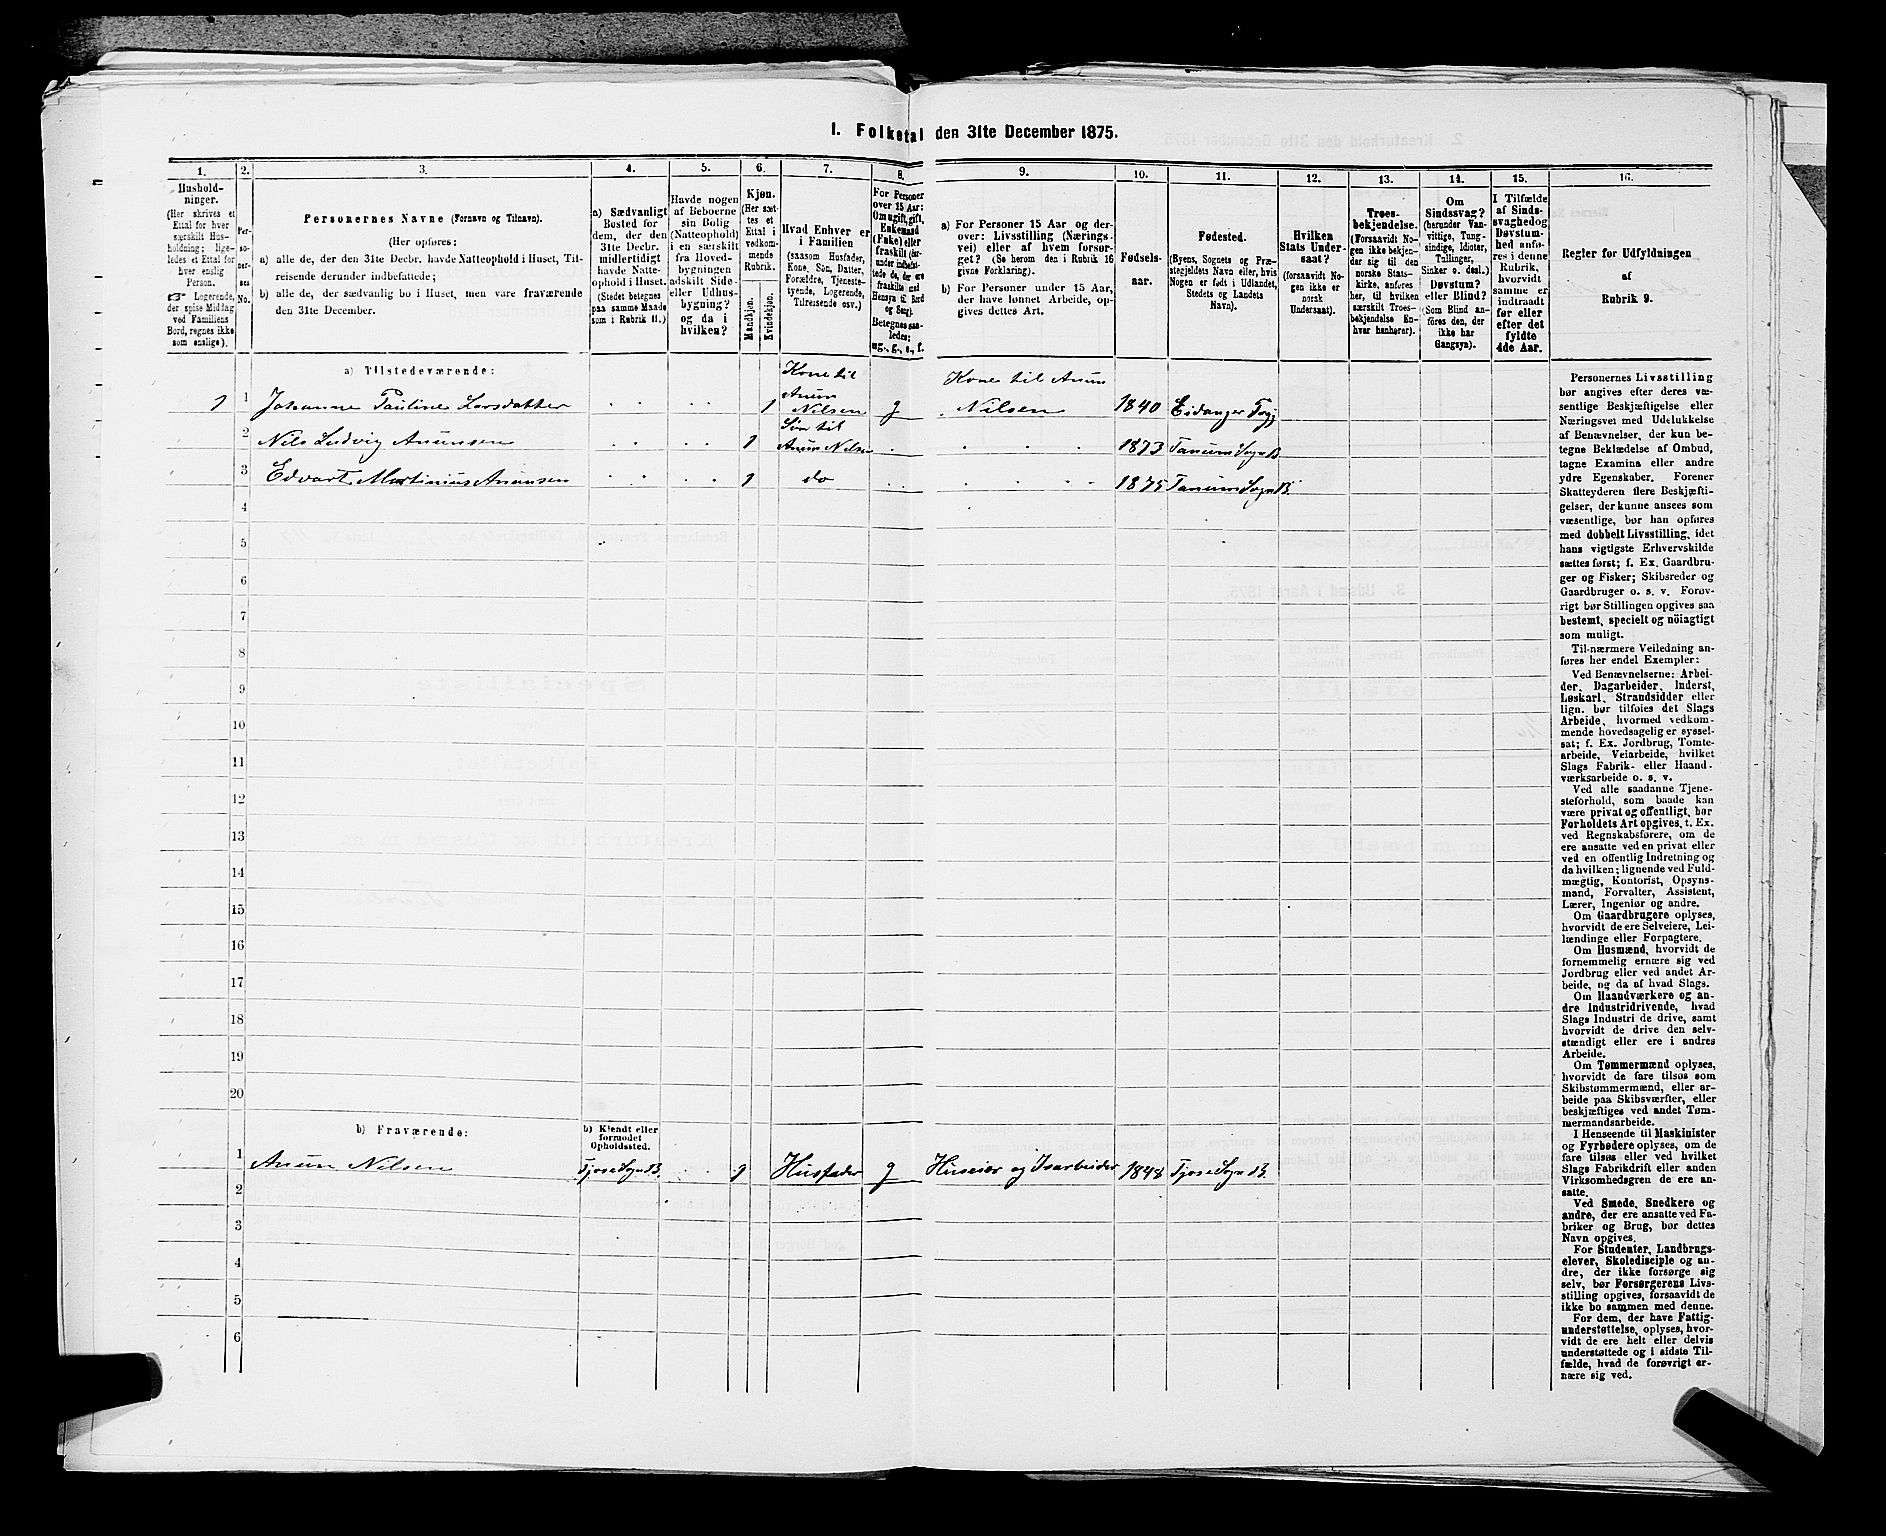 I. Folketal den 31te December 1875.
1.
2.
3.
4.
5.
6.
7.
8.
9.
10.
11.
12.
13.
14.
15.
16.
Hushold-
ninger.
(Her skrives et
Ettal for hver
særskilt Hus-
holdning; lige-
ledes et Ettal for
hver enslig
Person.
☞ Logerende,
der spise Middag
ved Familiens
Bord, regnes ikke
som enslige).
Per-
so-
ner-
nes
No.
Personernes Navne (Fornavn og Tilnavn).
(Her opføres:
a) alle de, der den 31te Decbr. havde Natteophold i Huset, Til-
reisende derunder indbefattede;
b) alle de, der sædvanlig bo i Huset, men vare fraværende
den 31te December.
a) Sædvanligt
Bosted for
dem, der den
31te Decbr.
midlertidigt
havde Natte-
ophold i Huset.
(Stedet betegnes
paa samme Maade
som i Rubrik 11.)
Havde nogen
af Beboerne
sin Bolig
(Natteophold)
i en særskilt
fra Hoved-
bygningen
adskilt Side-
eller Udhus-
bygning?
og da i
hvilken?
Kjøn.
(Her sæt-
tes et
Ettal i
vedkom-
mende
Rubrik.
Mandkjøn.
Kvindekjøn.
Hvad Enhver er
i Familien
(saasom Husfader,
Kone, Søn, Datter,
Forældre, Tjeneste-
tyende, Logerende,
Tilreisende osv.)
For Personer
over 15 Aar:
Om ugift, gift,
Enkemand
(Enke) eller
fraskilt
Betegnes saa-
ledes:
ug., g., e., f.
a) For Personer 15 Aar og der-
over: Livsstilling (Nærings-
vei) eller af hvem forsør-
get? (Se herom den i Rubrik 16
givne Forklaring).
b) For Personer under 15 Aar,
der have lønnet Arbeide, op-
gives dettes Art.
Fødsels-
aar.
Fødested.
(Byens, Sognets og Præ-
stegjeldets Navn eller, hvis
Nogen er født i Udlandet,
Stedets og Landets
Navn).
Hvilken
Stats Under-
saat?
(forsaavidt No-
gen ikke er
norsk
Undersaat).
Troes-
bekjendelse.
(Forsaavidt No-
gen ikke bekjen-
der sig til den
norske Stats-
kirke, anføres
her, til hvilken
særskilt Troes-
bekjendelse En-
hver henhører).
Om
Sindssvag?
(herunder Van-
vittige, Tung-
sindige, Idioter,
Tullinger,
Sinker o. desl.)
Døvstum?
eller Blind?
(Som Blind an-
føres den, der
ikke har
Gangsyn).
I Tilfælde
af Sinds-
svaghed og
Døvstum-
hed anfø-
res i denne
Rubrik,
hvorvidt
samme er
indtraadt
før eller
efter det
fyldte
4de Aar.
Regler for Udfyldningen
af
Rubrik 9.
a) Tilstedeværende:
1 1 Johanne Pauline Larsdatter 1 Kone til Anun Nilsen g Kone til Anun Nilsen 1840 Eidanger
2 Nils Ludvig Anunsen 1 Søn til Anun Nilsen 1873 Tanum Sogn B.
3 Edvart Martinius Anunsen 1 do 1875 Tanum Sogn B.
4
5
6
7
8
9
10
11
12
13
14
15
16
17
18
19
20
b) Fraværende:
b) Kjendt eller
formodet
Opholdssted.
1 Anun Nilsen Tjose Sogn B. 1 Husfader g Huseier og Isarbeider 1848 Tjose Sogn B.
2
3
4
5
6
Personernes Livsstilling
bør angives efter deres væ-
sentlige Beskjæftigelse eller
Næringsvei med Udelukkelse
af Benævnelser, der kun be-
tegne Beklædelse af Ombud,
tagne Examina eller andre
ydre Egenskaber. Forener
Skatteyderen flere Beskjæfti-
gelser, der kunne ansees som
væsentlige, bør han opføres
med dobbelt Livsstilling, idet
hans vigtigste Erhvervskilde
sættes først; f. Ex. Gaardbru-
ger og Fisker; Skibsreder og
Gaardbruger o. s. v. Forøv-
rigt bør Stillingen opgives saa
bestemt, specielt og nöiagtigt
som muligt.
Til nærmere Veiledning an-
føres her endel Exempler:
Ved Benævnelserne: Arbei-
der, Dagarbeider, Inderst,
Løskarl, Strandsidder eller
lign. bør tilføies det Slags
Arbeide, hvormed vedkom-
mende hovedsagelig er syssel-
sat; f. Ex. Jordbrug, Tomte-
arbeide, Veiarbeide, hvilket
Slags Fabrik- eller Haand-
værksarbeide o. s. v.
Ved alle saadanne Tjene-
steforhold, som baade kan
være privat og offentligt, bør
Forholdets Art opgives, t. Ex.
ved Regnskabsførere, om de
ere ansatte ved en privat eller
ved en offentlig Indretning og
da hvilken; lignende ved Fuld-
mægtig, Kontorist, Opsyns-
mand, Forvalter, Assistent,
Lærer, Ingeniør og andre.
Om Gaardbrugere oplyses,
hvorvidt de ere Selveiere, Lei-
lændinge eller Forpagtere.
Om Husmænd, hvorvidt de
fornemmelig ernære sig ved
Jordbrug eller ved andet Ar-
beide, og da af hvad Slags.
Om Haandværkere og an-
dre Industridrivende, hvad
Slags Industri de drive, samt
hvorvidt de drive den selv-
stændigt eller ere i andres
Arbeide.
Om Tømmermænd oplyses,
hvorvidt de fare tilsøs som
Skibstømmermænd, eller ar-
beide paa Skibsværfter, eller
beskjæftiges ved andet Tøm-
mermandsarbeide.
I Henseende til Maskinister
og Fyrbødere oplyses, om de
fare tilsøs eller ved hvilket
Slags Fabrikdrift eller anden
Virksomhedsgren de ere an-
satte.
Ved Smede, Snedkere og
andre, der ere ansatte ved Fa-
briker og Brug, bør dettes
Navn opgives.
For Studenter, Landbrugs-
elever, Skoledisciple og an-
dre, der ikke forsørge sig
selv, bør Forsørgerens Livs-
stilling opgives, forsaavidt de
ikke bo sammen med denne.
For dem, der have Fattig-
understøttelse, oplyses, hvor-
vidt de ere helt eller delvis
understøttede og i sidste Til-
fælde, hvad de forøvrigt er-
nære sig ved.